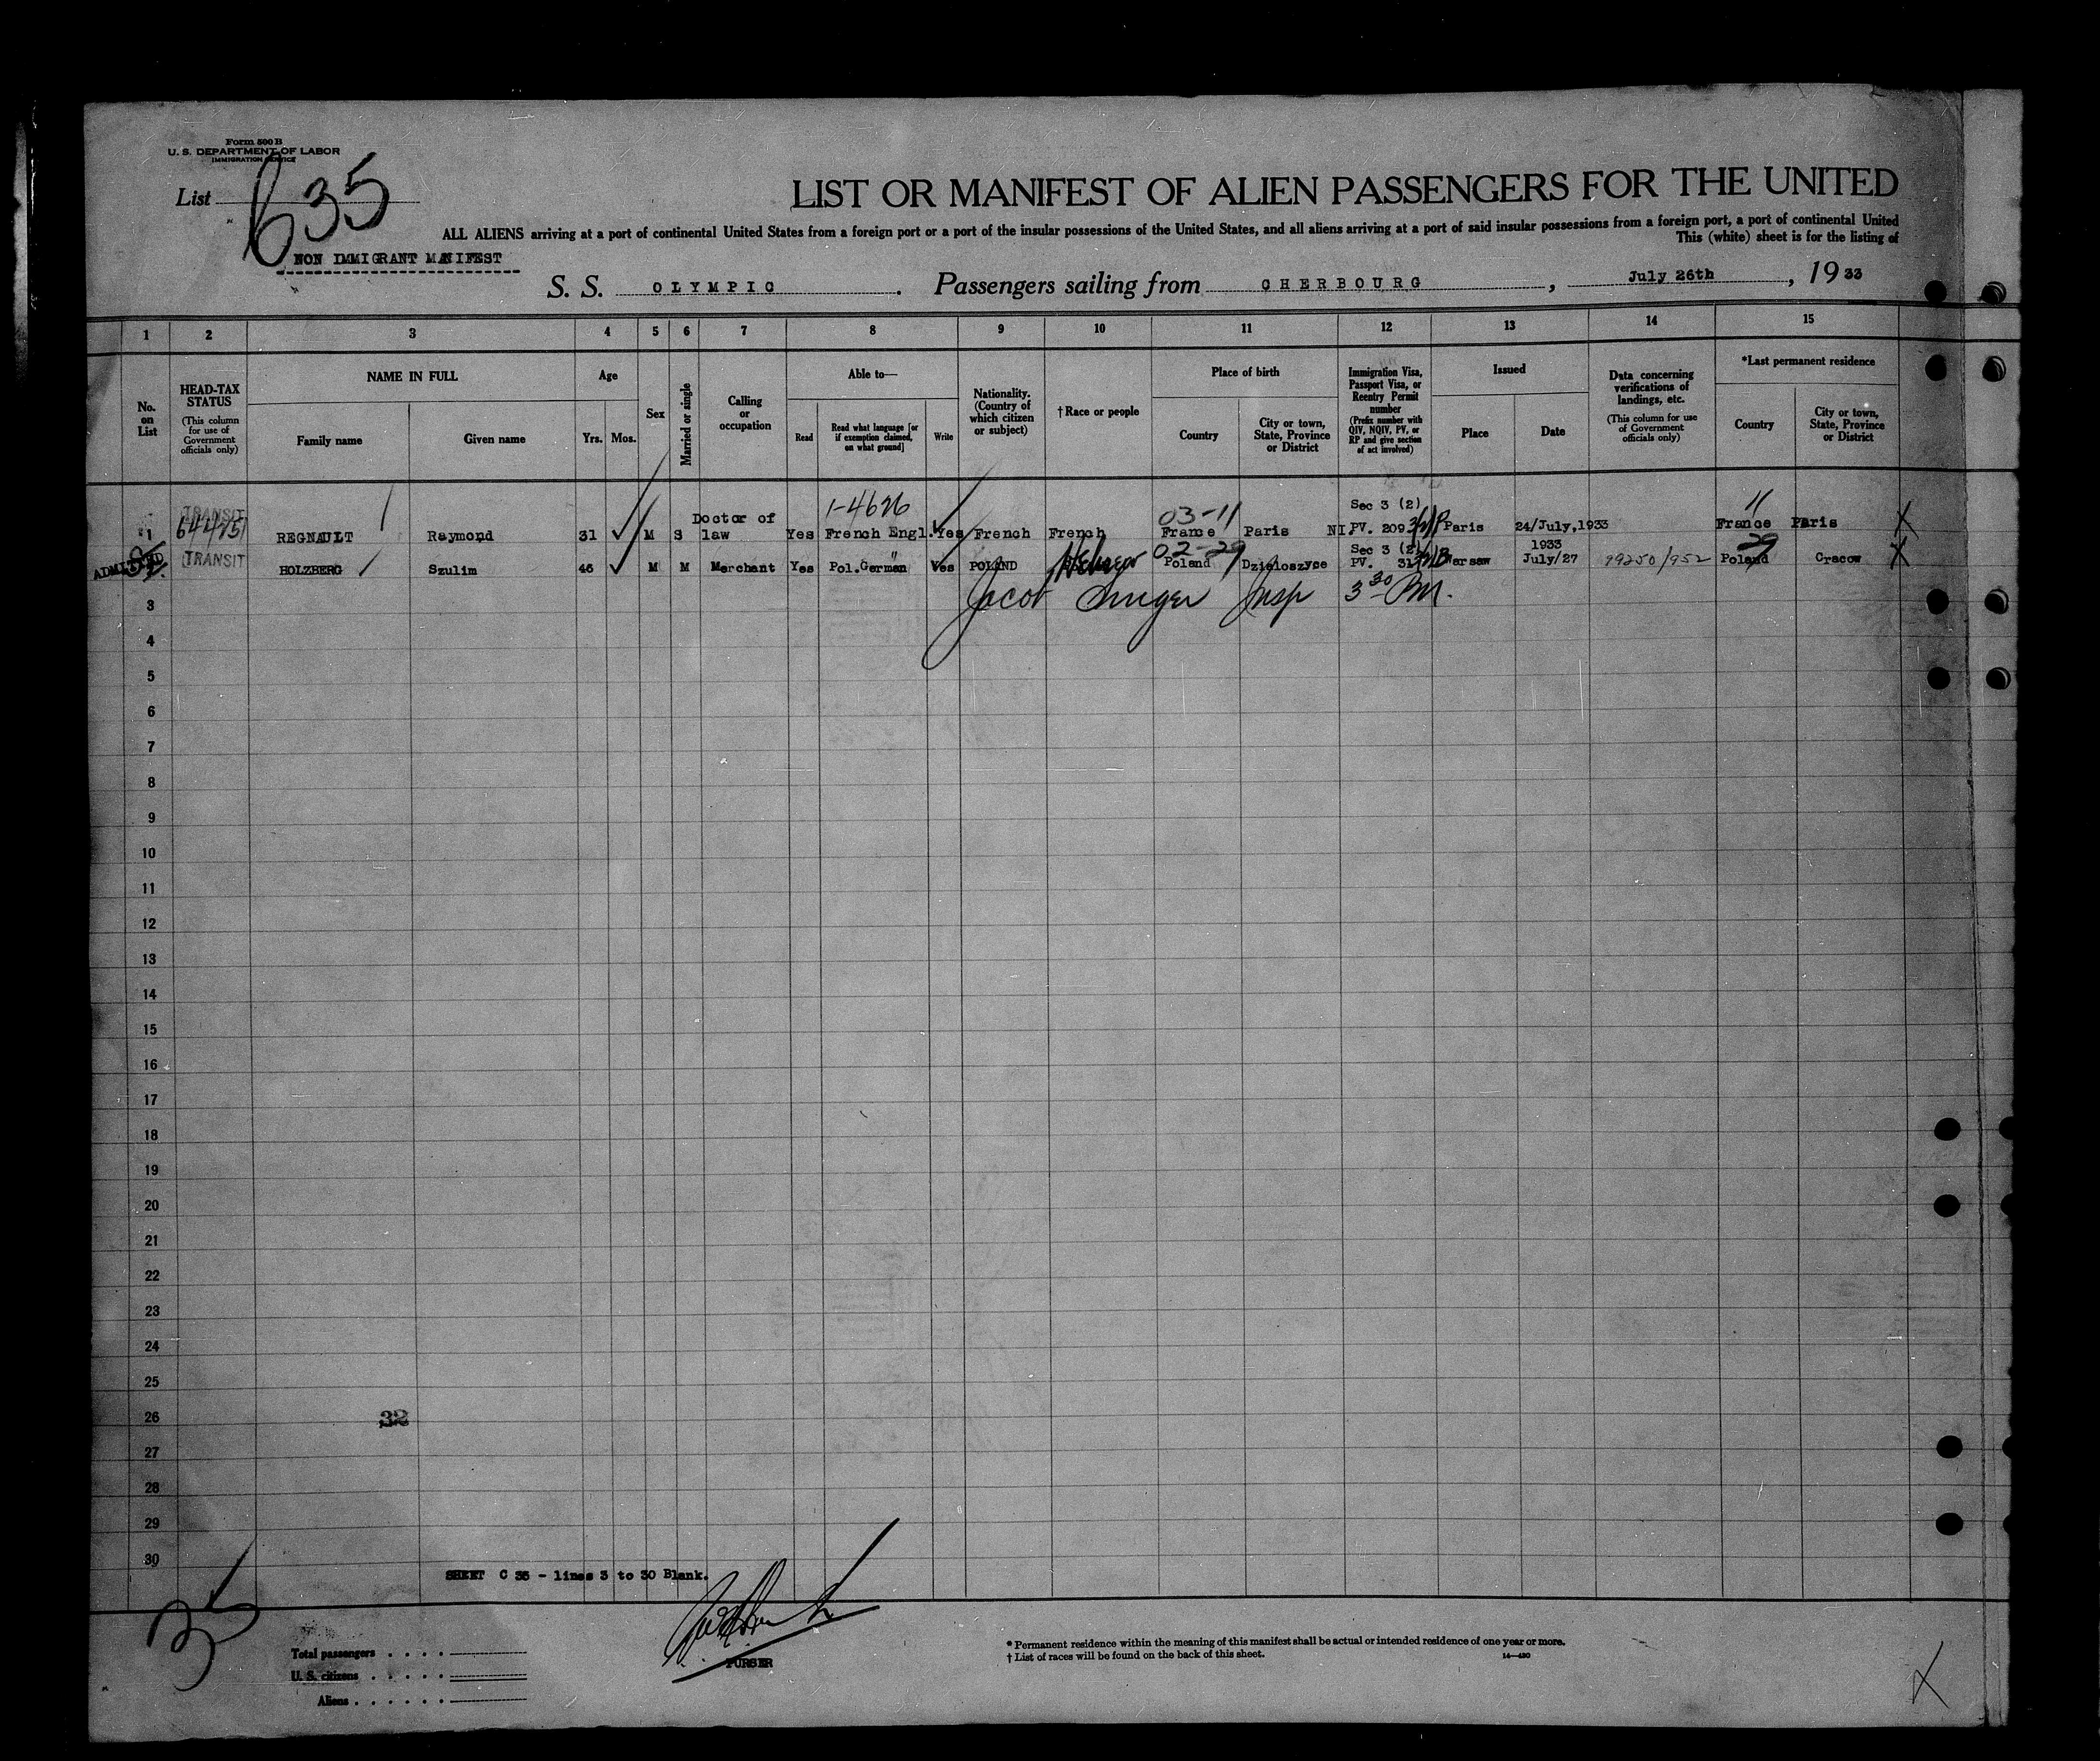 Form 500 B
U. S. DEPARTMENT OF LABOR
IMMIGRATION SERVICE
List 635
LIST OR MANIFEST OF ALIEN PASSENGERS FOR THE UNITED
ALL ALIENS arriving at a port of continental United States from a foreign port or a port of the insular possessions of the United States, and all aliens arriving at a port of said insular possessions from a foreign port, a port of continental United
This (white) sheet is for the listing of
NON IMMIGRANT MANIFEST
S. S. OLYMPIC. Passengers sailing from CHERBOURG, July 26th, 19 33
1 2 3 4 5 6 7 8 9 10 11 12 13 14 15
No. on List
HEAD-TAX STATUS
(This column for use of Government officials only)
NAME IN FULL
Family name
Given name
Age
Yrs. Mos.
Sex
Married or single
Calling or occupation
Able to—
Read
Read what language [or if exemption claimed, on what ground]
Write
Nationality. (Country of which citizen or subject)
† Race or people
Place of birth
Country
City or town, State, Province or District
Immigration Visa, Passport Visa, or Reentry Permit number
(Prefix number with QIV, NQIV, PV, or RP and give section of act involved)
Issued
Place
Date
Data concerning verifications of landings, etc.
(This column for use of Government officials only)
*Last permanent residence
Country
City or town, State, Province or District
1-4626
TRANSIT 03-11 Sec 3 (2) 11
1 644751 REGNAULT Raymond 31 M S Doctor of law Yes French Engl. Yes French French France Paris NI.PV. 209 Paris 24/July,1933 France Paris X
02-29 Sec 3 (2) 1933 29
ADMITTED TRANSIT HOLZBERG Szulim 46 M M Merchant Yes Pol. German Yes POLAND Hebrew Poland Dzialoszyce PV. 31 Warsaw July/27 99250/952 Poland Cracow X
Jacob Insp 3 30 PM.
3
4
5
6
7
8
9
10
11
12
13
14
15
16
17
18
19
20
21
22
23
24
25
26 32
27
28
29
30
SHEET C 35 - lines 3 to 30 Blank.
35
PURSER
Total passengers
U. S. citizens
Aliens
* Permanent residence within the meaning of this manifest shall be actual or intended residence of one year or more.
† List of races will be found on the back of this sheet.
14—430
X